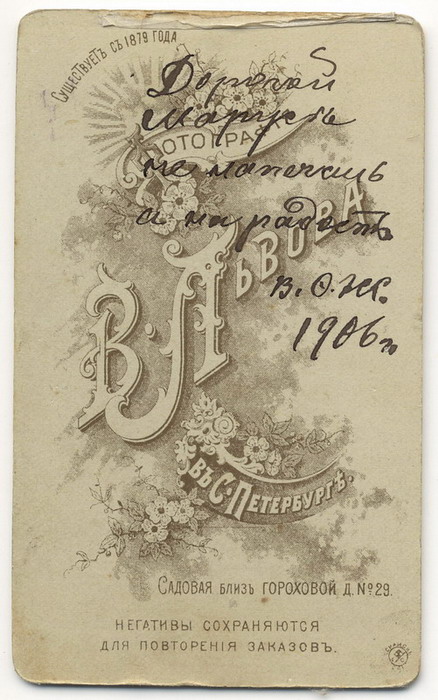 Существуетъ съ 1879 года
Дорогой
Марусѣ
не на печаль
а на радость
В. О. Ж.
1906 г.
Фотографія
В. Львова
въ С. Петербургѣ.
Садовая близъ Гороховой д. № 29.
Негативы сохраняются
для повторенія заказовъ.